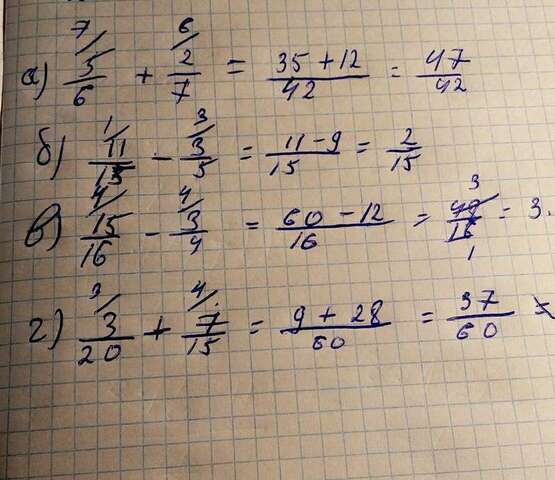 а) 5/6 (7/ + 2/7 (6/ = 35+12/42 = 47/42
б) 11/15 (1/ - 3/5 (3/ = 11-9/15 = 2/15
в) 15/16 (4/ - 3/4 (4/ = 60-12/16 = 48/16 (3, 1) = 3.
г) 3/20 (3/ + 7/15 (4/ = 9+28/60 = 37/60